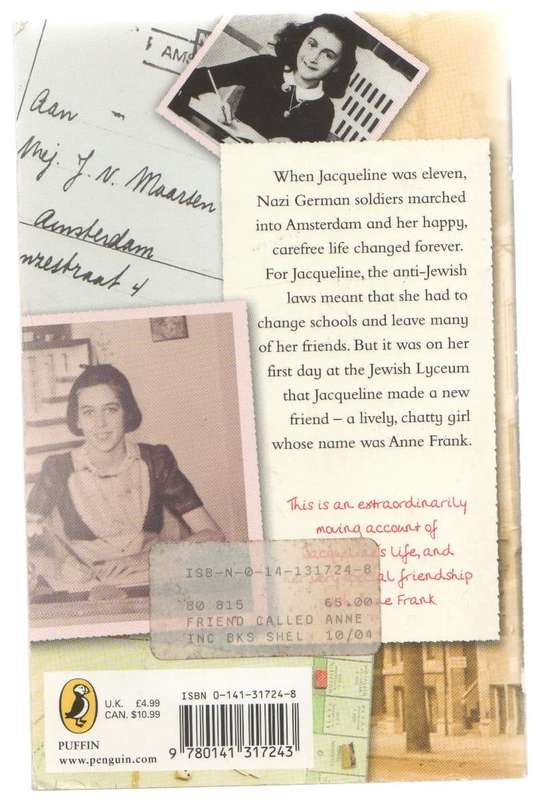 AMS
Aan
Mej. J. v. Maarsen
Amsterdam
nzestraat 4
When Jacqueline was eleven,
Nazi German soldiers marched
into Amsterdam and her happy,
carefree life changed forever.
For Jacqueline, the anti-Jewish
laws meant that she had to
change schools and leave many
of her friends. But it was on her
first day at the Jewish Lyceum
that Jacqueline made a new
friend – a lively, chatty girl
whose name was Anne Frank.
This is an extraordinarily
moving account of
Jacqueline's life, and
very special friendship
e Frank
ISB-N-0-14-131724-8
80 815 65.00
FRIEND CALLED ANNE
INC BKS SHEL 10/04
U.K. £4.99
CAN. $10.99
PUFFIN
www.penguin.com
ISBN 0-141-31724-8
9 780141 317243